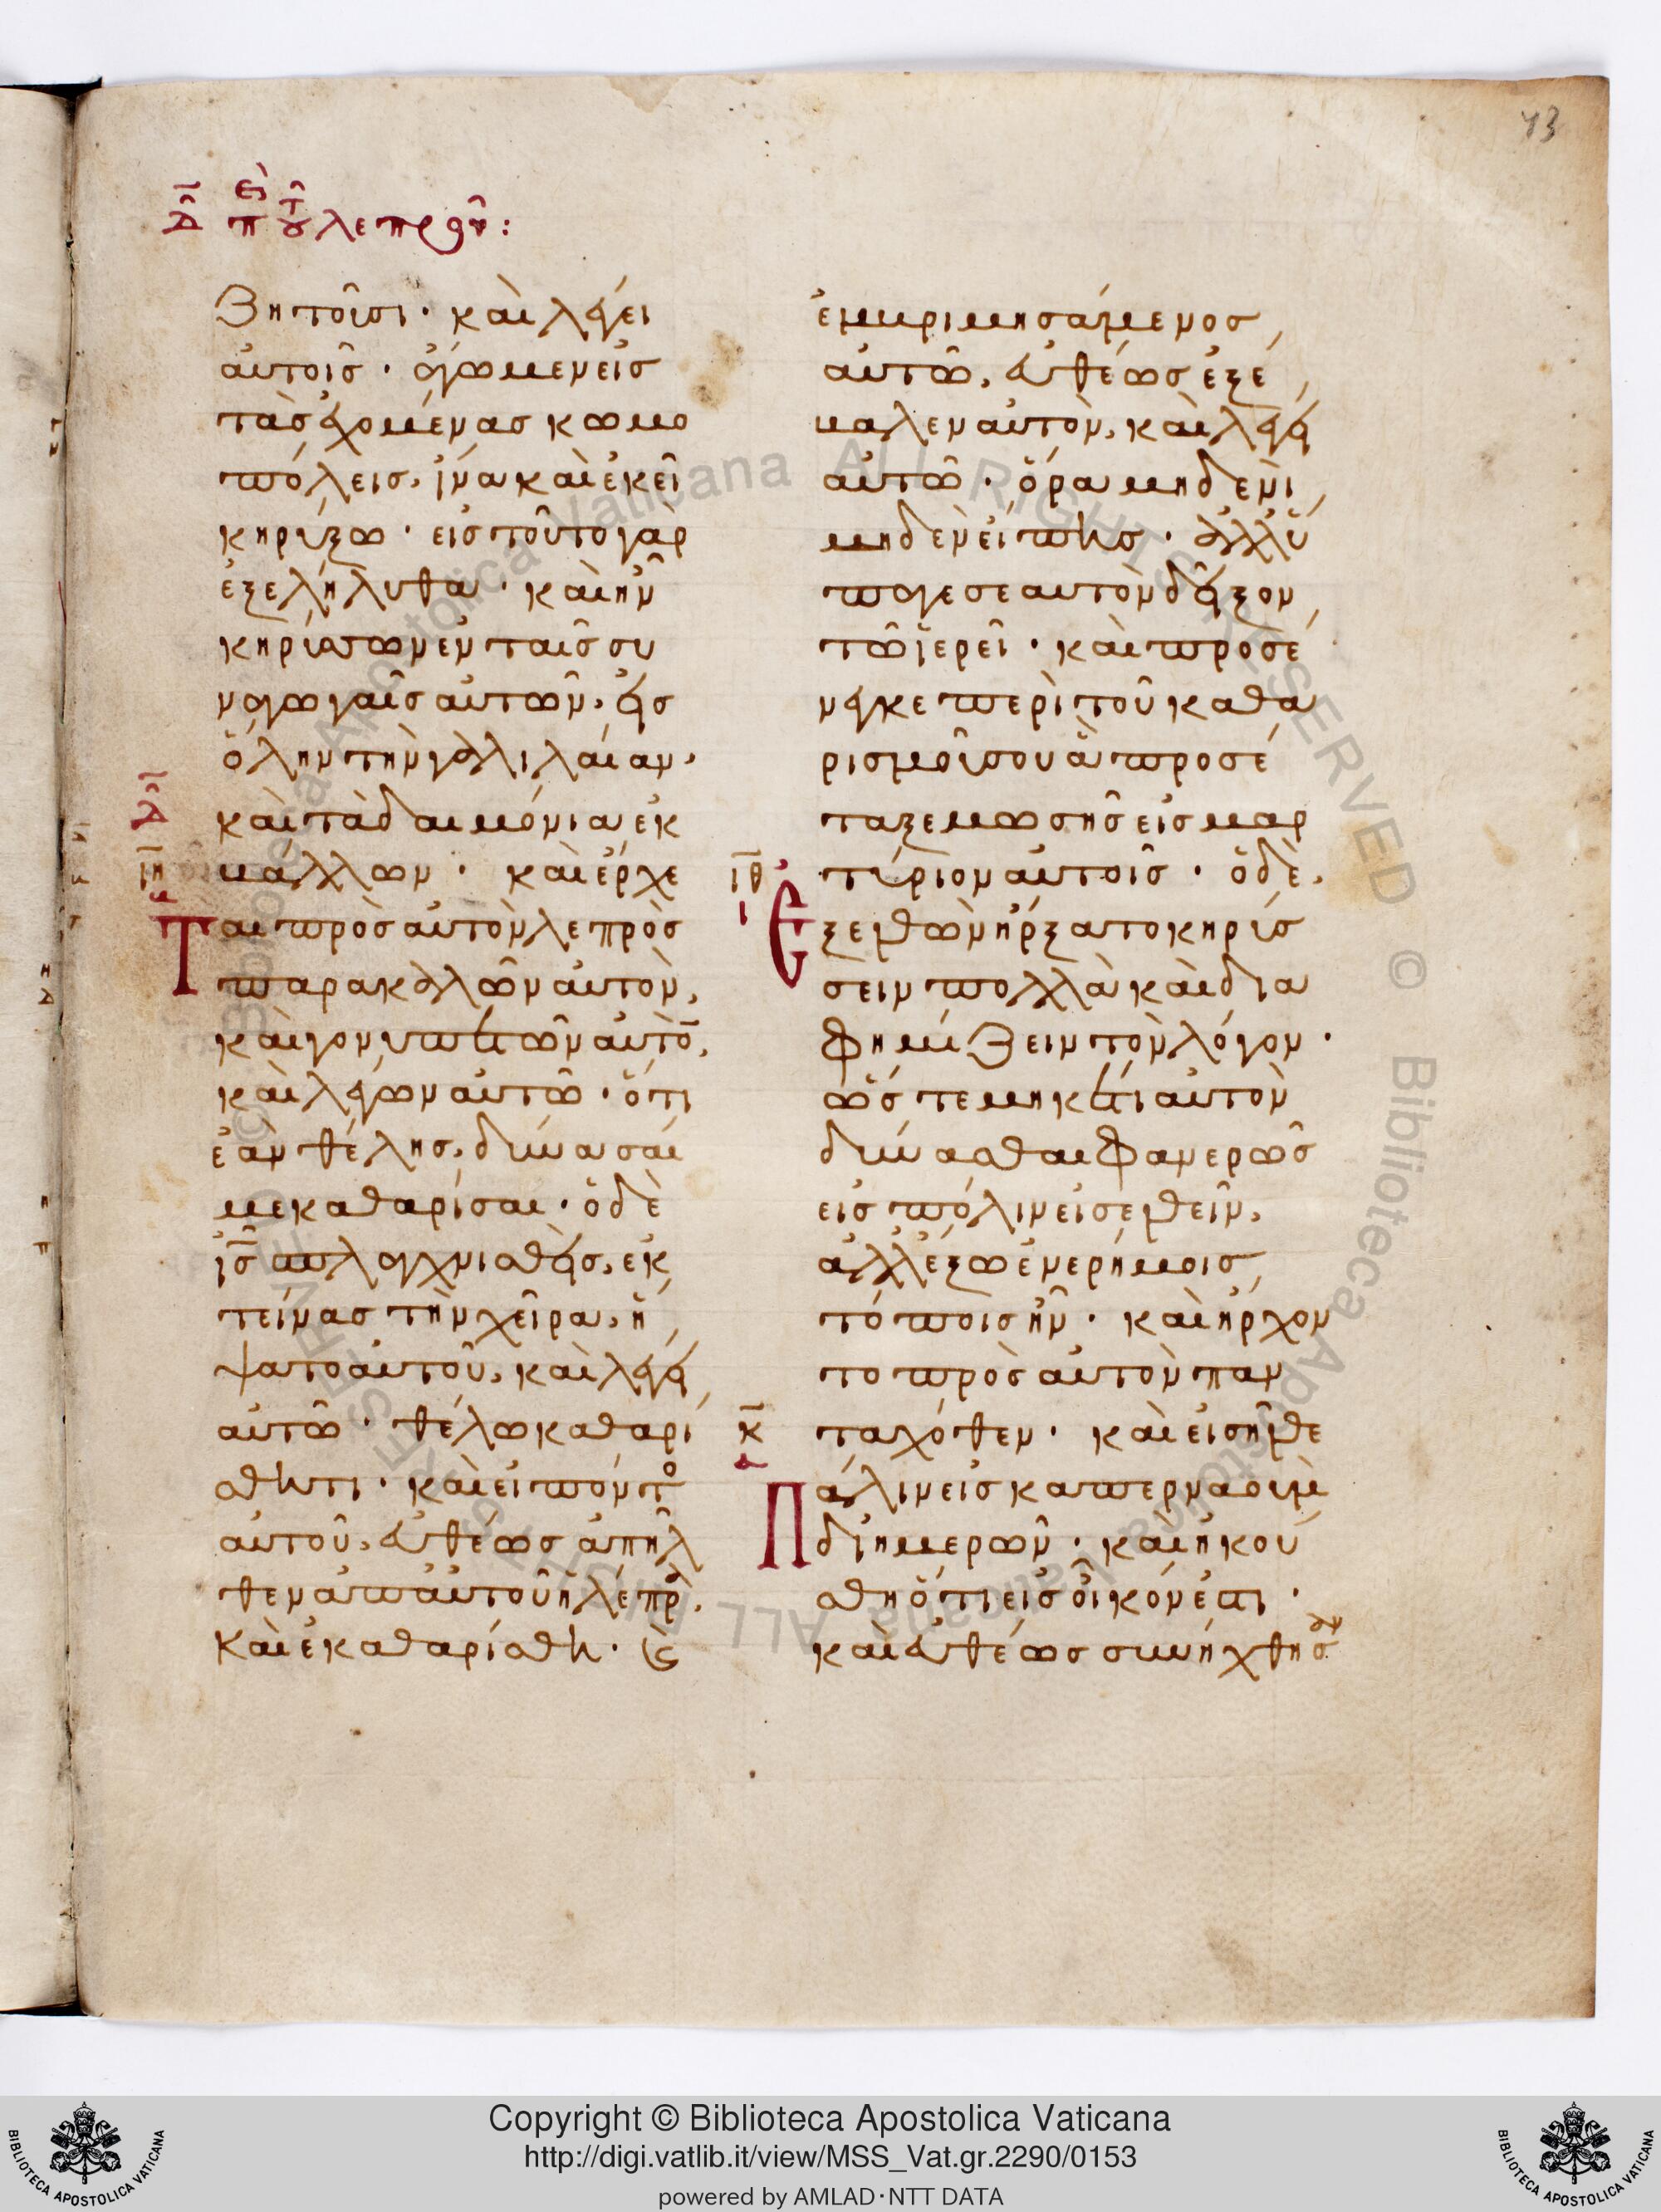 73
δ̄ περὶ τοῦ λεπροῦ:
ζητοῦσι· καὶ λέγει
αὐτοῖς· ἄγωμεν εἰς
τὰς ἐχομένας κωμο
πόλεις, ἵνα καὶ ἐκεῖ
κηρύξω· εἰς τοῦτο γὰρ
ἐξελήλυθα· καὶ ἦν
κηρύσσων ἐν ταῖς συ
ναγωγαῖς αὐτῶν, εἰς
ὅλην τὴν γαλιλαίαν,
καὶ τὰ δαιμόνια ἐκ
βάλλων· καὶ ἔρχε
ται πρὸς αὐτὸν λεπρὸς
παρακαλῶν αὐτὸν,
καὶ γονυπετῶν αὐτὸ̄,
καὶ λέγων αὐτῶ· ὅτι
ἐὰν θέλης, δύνασαί
με καθαρίσαι· ὁ δὲ
ἰ̅ς̅ σπλαγχνισθεὶς, ἐκ
τείνας τὴν χεῖρα, ἥ
ψατο αὐτοῦ, καὶ λέγει
αὐτῶ· θέλω καθαρί
σθητι· καὶ εἰπόντο
αὐτοῦ, εὐθέως ἀπῆλ
θεν ἀπ' αὐτοῦ ἡ λέπρ,
καὶ ἐκαθαρίσθη· κ(αὶ)
ἐμβριμησάμενος
αὐτῶ, εὐθέως ἐξέ
βαλεν αὐτὸν, καὶ λέγει
αὐτῶ· ὅρα μηδενὶ
μηδὲν εἴπης· ἀλλ' ὕ
παγε σεαυτὸν δεῖξον
τῶ ἱερεῖ· καὶ προσέ
νεγκε περὶ τοῦ καθα
ρισμοῦ σου ἃ προσέ
ταξε μωσῆς εἰς μαρ
ιθ̄ τύριον αὐτοῖς· ὁ δὲ,
ἐξελθὼν ἤρξατο κηρύσ
σειν πολλὰ καὶ δια
φημίζειν τὸν λόγον·
ὥστε μηκέτι αὐτὸν
δύνασθαι φανερῶς
εἰς πόλιν εἰσελθεῖν,
ἀλλ' ἔξω ἐν ἐρήμοις
τόποις ἦν· καὶ ἤρχον
το πρὸς αὐτὸν παν
κ̄ ταχόθεν· καὶ εἰσῆλθε
πάλιν εἰς καπερναοὺμ
δι' ἡμερῶν· καὶ ἠκού
σθη ὅτι εἰς οἶκόν ἐστι·
καὶ εὐθέως συνήχθησαν
Copyright © Biblioteca Apostolica Vaticana
http://digi.vatlib.it/view/MSS_Vat.gr.2290/0153
powered by AMLAD·NTT DATA
BIBLIOTECA APOSTOLICA VATICANA
BIBLIOTECA APOSTOLICA VATICANA